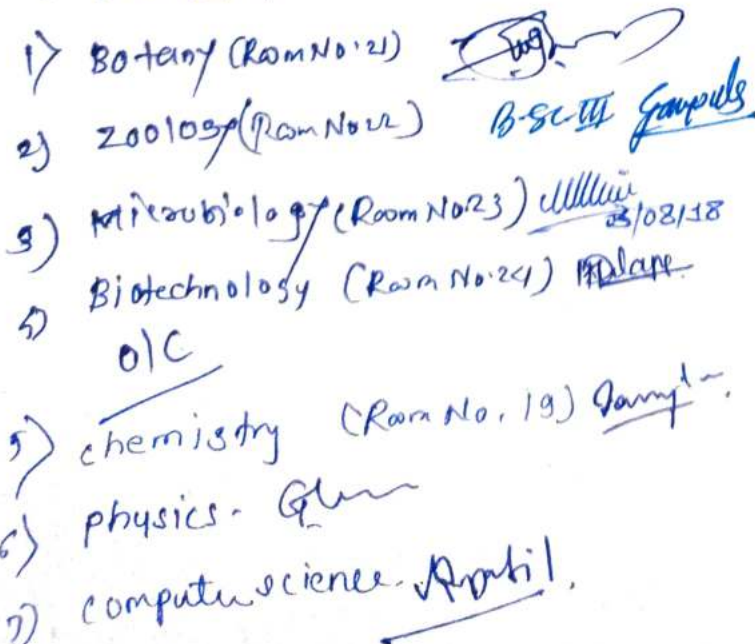 1) Botany (Room No. 21)
2) Zoology (Room No 22) B-Sc-III
3) Microbiology (Room No. 23) 3/08/18
4) Biotechnology (Room No. 24)
O/C
5) chemistry (Room No. 19)
6) physics-
7) computer science. Apatil.